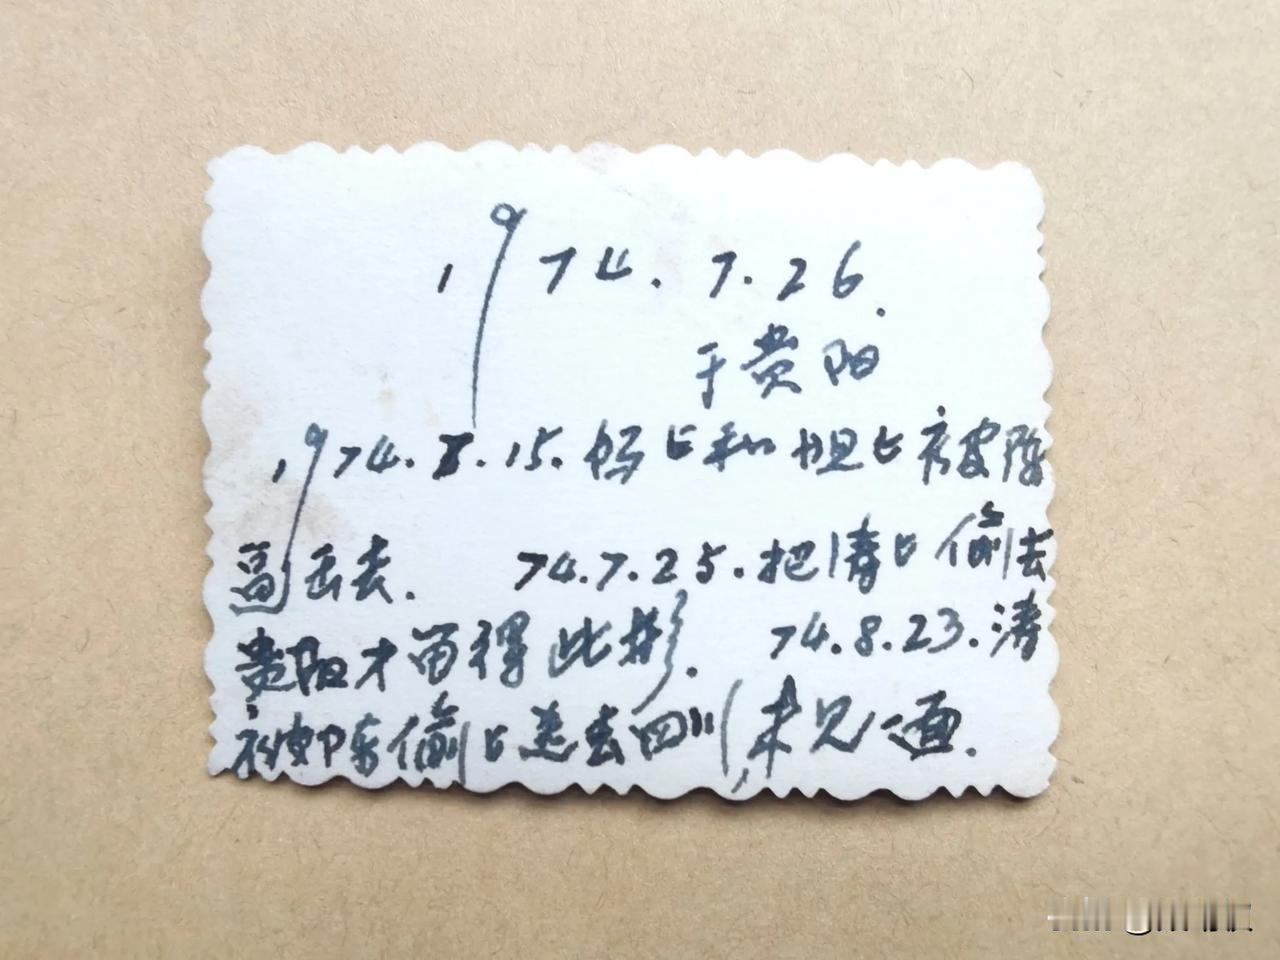 1974.7.26.
于贵阳
1974.8.15.妈々和姐々被陈
高丢去. 74.7.25.把涛々偷去
贵阳才留得此影. 74.8.23.涛
被陈偷々送去四川,未见一面.